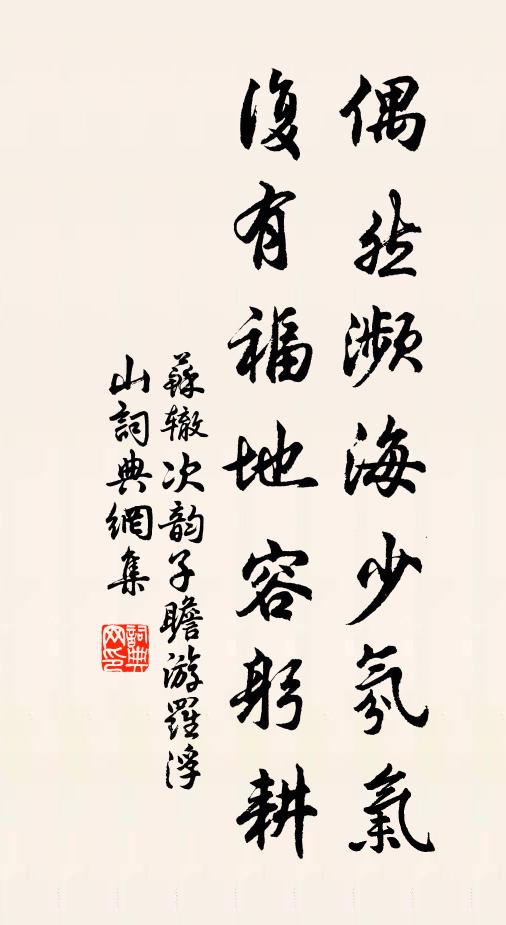 偶然瀕海少氛氣
復有福地容躬耕
蘇辙次韵子瞻游羅浮
山詞典網集
詞典
网印